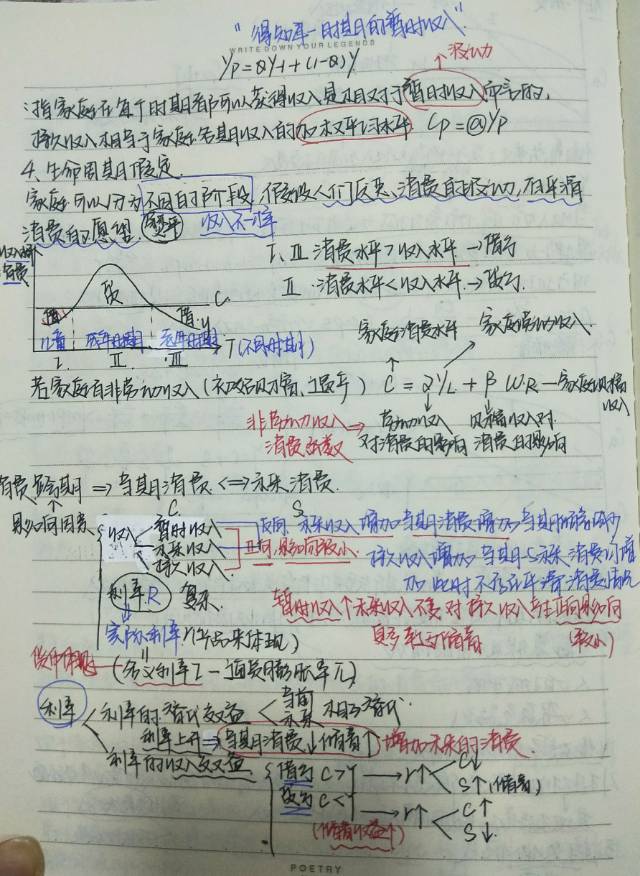 "得知单一时期的暂时收入"
WRITE DOWN YOUR LEGENDS
YP=θY1+(1-θ)Y
↑波动
指家庭在每个时期都可以获得收入是相对于暂时收入而言的,
持久收入相当于家庭各期收入的加权平均水平 CP=@YP
4.生命周期假定
家庭可以分为不同的阶段,假设人们厌恶消费的波动,有平滑
消费的愿望. 收入不一样
收入水平
消费
I、III 消费水平>收入水平→借贷
II 消费水平<收入水平→储蓄
C
Y
I. II. III T(不同时期)
成年时期 老年时期
家庭消费水平 家庭劳动收入.
若家庭有非劳动收入 C=αYL+βWR—家庭财富
收入
非劳动收入⇒劳动收入 财富收入对
消费函数 对消费的影响 消费的影响
消费跨期⇒当期消费⇔未来消费.
C S
影响因素
收入 暂时收入
未来收入
持久收入
反向 未来收入增加当期消费增加当期储蓄减少
正向,影响较小.
持久收入增加 当期与未来消费同增
加 此时不存在平滑消费
利率.R 复杂
暂时收入↑未来收入不变对持久收入有正向影响
更多转为储蓄 (较小)
实际利率
货币体现→(名义利率i-通货膨胀率π)
利率 利率的替代效益<当前 未来 相互替代.
利率上升⇒当期消费↓储蓄↑增加未来的消费.
利率的收入效益
借方 C>Y→r↑ C↓
S↑(储蓄)
贷方 C<Y→r↑ C↑
S↓.
(储蓄收益↑)
POETRY